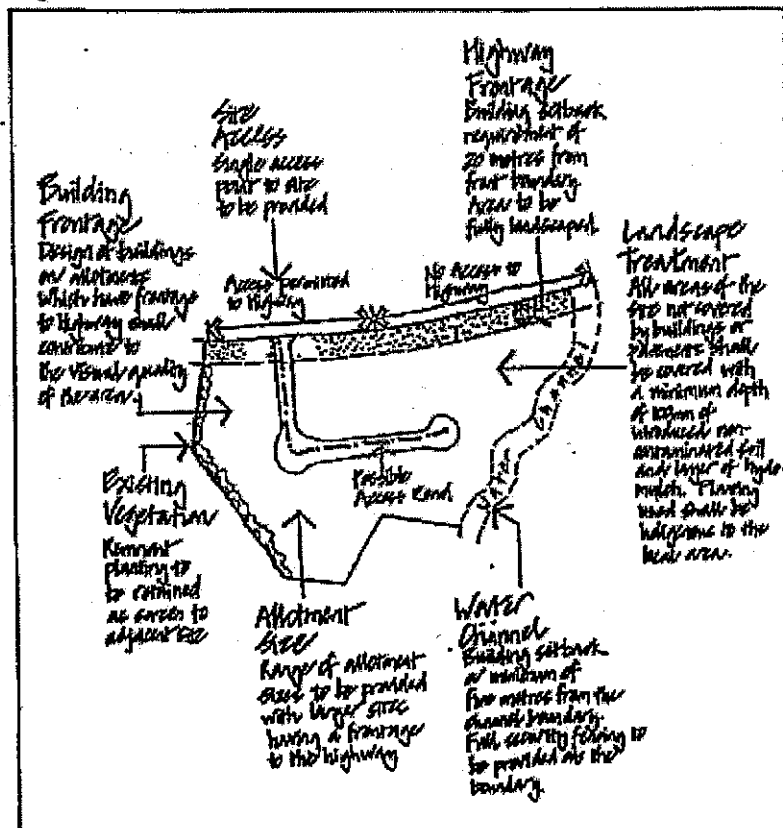 Highway
Frontage
Building setback
requirement of
20 metres from
front boundary
Area to be
fully landscaped.
Site
Access
Single access
point to site
to be provided
Building
Frontage
Design of buildings
on allotments
which have frontage
to Highway shall
contribute to
the visual quality
of the area.
Landscape
Treatment
All areas of the
site not covered
by buildings or
pavement shall
be covered with
a minimum depth
of 100mm of
introduced non-
contaminated soil
and layer of hydro
mulch. Planting
used shall be
indigenous to the
local area.
Access permitted
to Highway
No Access to
Highway
Water Channel
Possible
Access Road
Existing
Vegetation
Remnant
planting to
be retained
as screen to
adjacent site
Allotment
Size
Range of allotment
sizes to be provided
with larger sites
having a frontage
to the highway
Water
Channel
Building setback
a minimum of
five metres from the
channel boundary.
Full security fencing to
be provided at the
boundary.